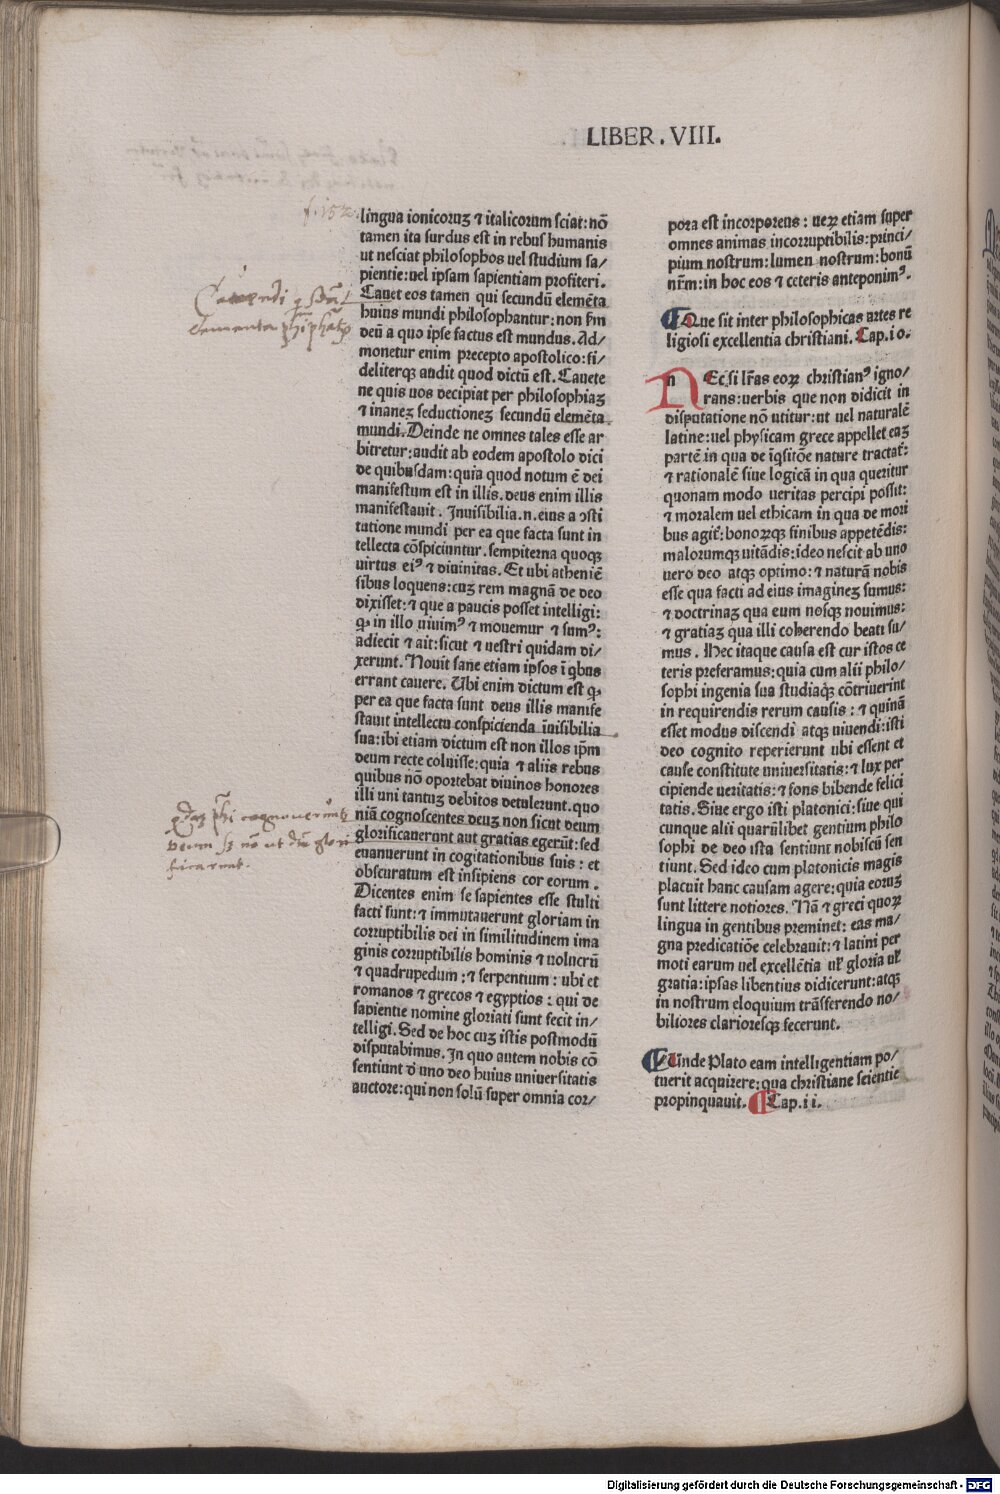 LIBER.VIII.
f.152
lingua ionicoruꝫ ⁊ italicorum sciat:nõ
tamen ita surdus est in rebus humanis
ut nesciat philosophos uel studium sa/
pientie:uel ipsam sapientiam profiteri.
Cauet eos tamen qui secundũ elemẽta
huius mundi philosophantur:non ẜm
deũ a quo ipse factus est mundus.Ad/
monetur enim precepto apostolico:fi/
deliterqꝫ audit quod dictũ est.Cauete
ne quis uos decipiat per philosophiaꝫ
⁊ inaneꝫ seductioneꝫ secundũ elemẽta
mundi.Deinde ne omnes tales esse ar
bitretur:audit ab eodem apostolo dici
de quibusdam:quia quod notum ẽ dei
manifestum est in illis.deus enim illis
manifestauit. Inuisibilia.n.eius a ɔsti
tutione mundi per ea que facta sunt in
tellecta cõspiciuntur.sempiterna quoqꝫ
uirtus eiꝰ ⁊ diuinitas.Et ubi atheniẽ
sibus loquens:cuꝫ rem magnã de deo
dixisset:⁊ que a paucis posset intelligi:
ꝙ in illo uiuimꝰ ⁊ mouemur ⁊ sumꝰ:
adiecit ⁊ ait:sicut ⁊ uestri quidam di/
xerunt.Nouit sane etiam ipsos ĩ qbus
errant cauere. Ubi enim dictum est ꝙ
per ea que facta sunt deus illis manife
stauit intellectu conspicienda ĩuisibilia
sua:ibi etiam dictum est non illos ip̃m
deum recte coluisse:quia ⁊ aliis rebus
quibus nõ oportebat diuinos honores
illi uni tantuꝫ debitos detulerunt.quo
niã cognoscentes deuꝫ non sicut deum
glorificauerunt aut gratias egerũt:sed
euanuerunt in cogitationibus suis: et
obscuratum est insipiens cor eorum.
Dicentes enim se sapientes esse stulti
facti sunt:⁊ immutauerunt gloriam in
corruptibilis dei in similitudinem ima
ginis corruptibilis hominis ⁊ uolucrũ
⁊ quadrupedum:⁊ serpentium: ubi et
romanos ⁊ grecos ⁊ egyptios: qui de
sapientie nomine gloriati sunt fecit in/
telligi.Sed de hoc cuꝫ istis postmodũ
disputabimus.In quo autem nobis cõ
sentiunt d̾ uno deo huius uniuersitatis
auctore:qui non solũ super omnia cor/
Cauendi
elementa
cognouerunt
deum
ficarunt.
pora est incorporeus: ueꝝ etiam super
omnes animas incorruptibilis:princi/
pium nostrum:lumen nostrum:bonũ
nr̃m:in hoc eos ⁊ ceteris anteponimꝰ.
Que sit inter philosophicas artes re
ligiosi excellentia christiani. Cap.io.
nEc si lr̃as eoꝝ christianꝰ igno/
rans:uerbis que non didicit in
disputatione nõ utitur:ut uel naturalẽ
latine:uel physicam grece appellet eaꝫ
partẽ in qua de ĩqsitõe nature tractat̃:
⁊ rationalẽ siue logicã in qua queritur
quonam modo ueritas percipi possit:
⁊ moralem uel ethicam in qua de mori
bus agit̃:bonoꝝqꝫ finibus appetẽdis:
malorumqꝫ uitãdis:ideo nescit ab uno
uero deo atqꝫ optimo:⁊ naturã nobis
esse qua facti ad eius imagineꝫ sumus:
⁊ doctrinaꝫ qua eum nosqꝫ nouimus:
⁊ gratiaꝫ qua illi coherendo beati su/
mus. Hec itaque causa est cur istos ce
teris preferamus:quia cum alii philo/
sophi ingenia sua studiaqꝫ cõtriuerint
in requirendis rerum causis: ⁊ quinã
esset modus discendi atqꝫ uiuendi:isti
deo cognito reperierunt ubi essent et
cause constitute uniuersitatis:⁊ lux per
cipiende ueritatis:⁊ fons bibende felici
tatis.Siue ergo isti platonici:siue qui
cunque alii quarũlibet gentium philo
sophi de deo ista sentiunt nobiscũ sen
tiunt.Sed ideo cum platonicis magis
placuit hanc causam agere:quia eoruꝫ
sunt littere notiores. Nã ⁊ greci quoꝝ
lingua in gentibus preminet: eas ma/
gna predicatiõe celebrauit:⁊ latini per
moti earum uel excellẽtia ul̾ gloria ul̾
gratia:ipsas libentius didicerunt:atqꝫ
in nostrum eloquium trãsferendo no/
biliores clarioresqꝫ fecerunt.
Unde Plato eam intelligentiam po/
tuerit acquirere:qua christiane scientie
propinquauit. Cap.ii.
Digitalisierung gefördert durch die Deutsche Forschungsgemeinschaft - DFG